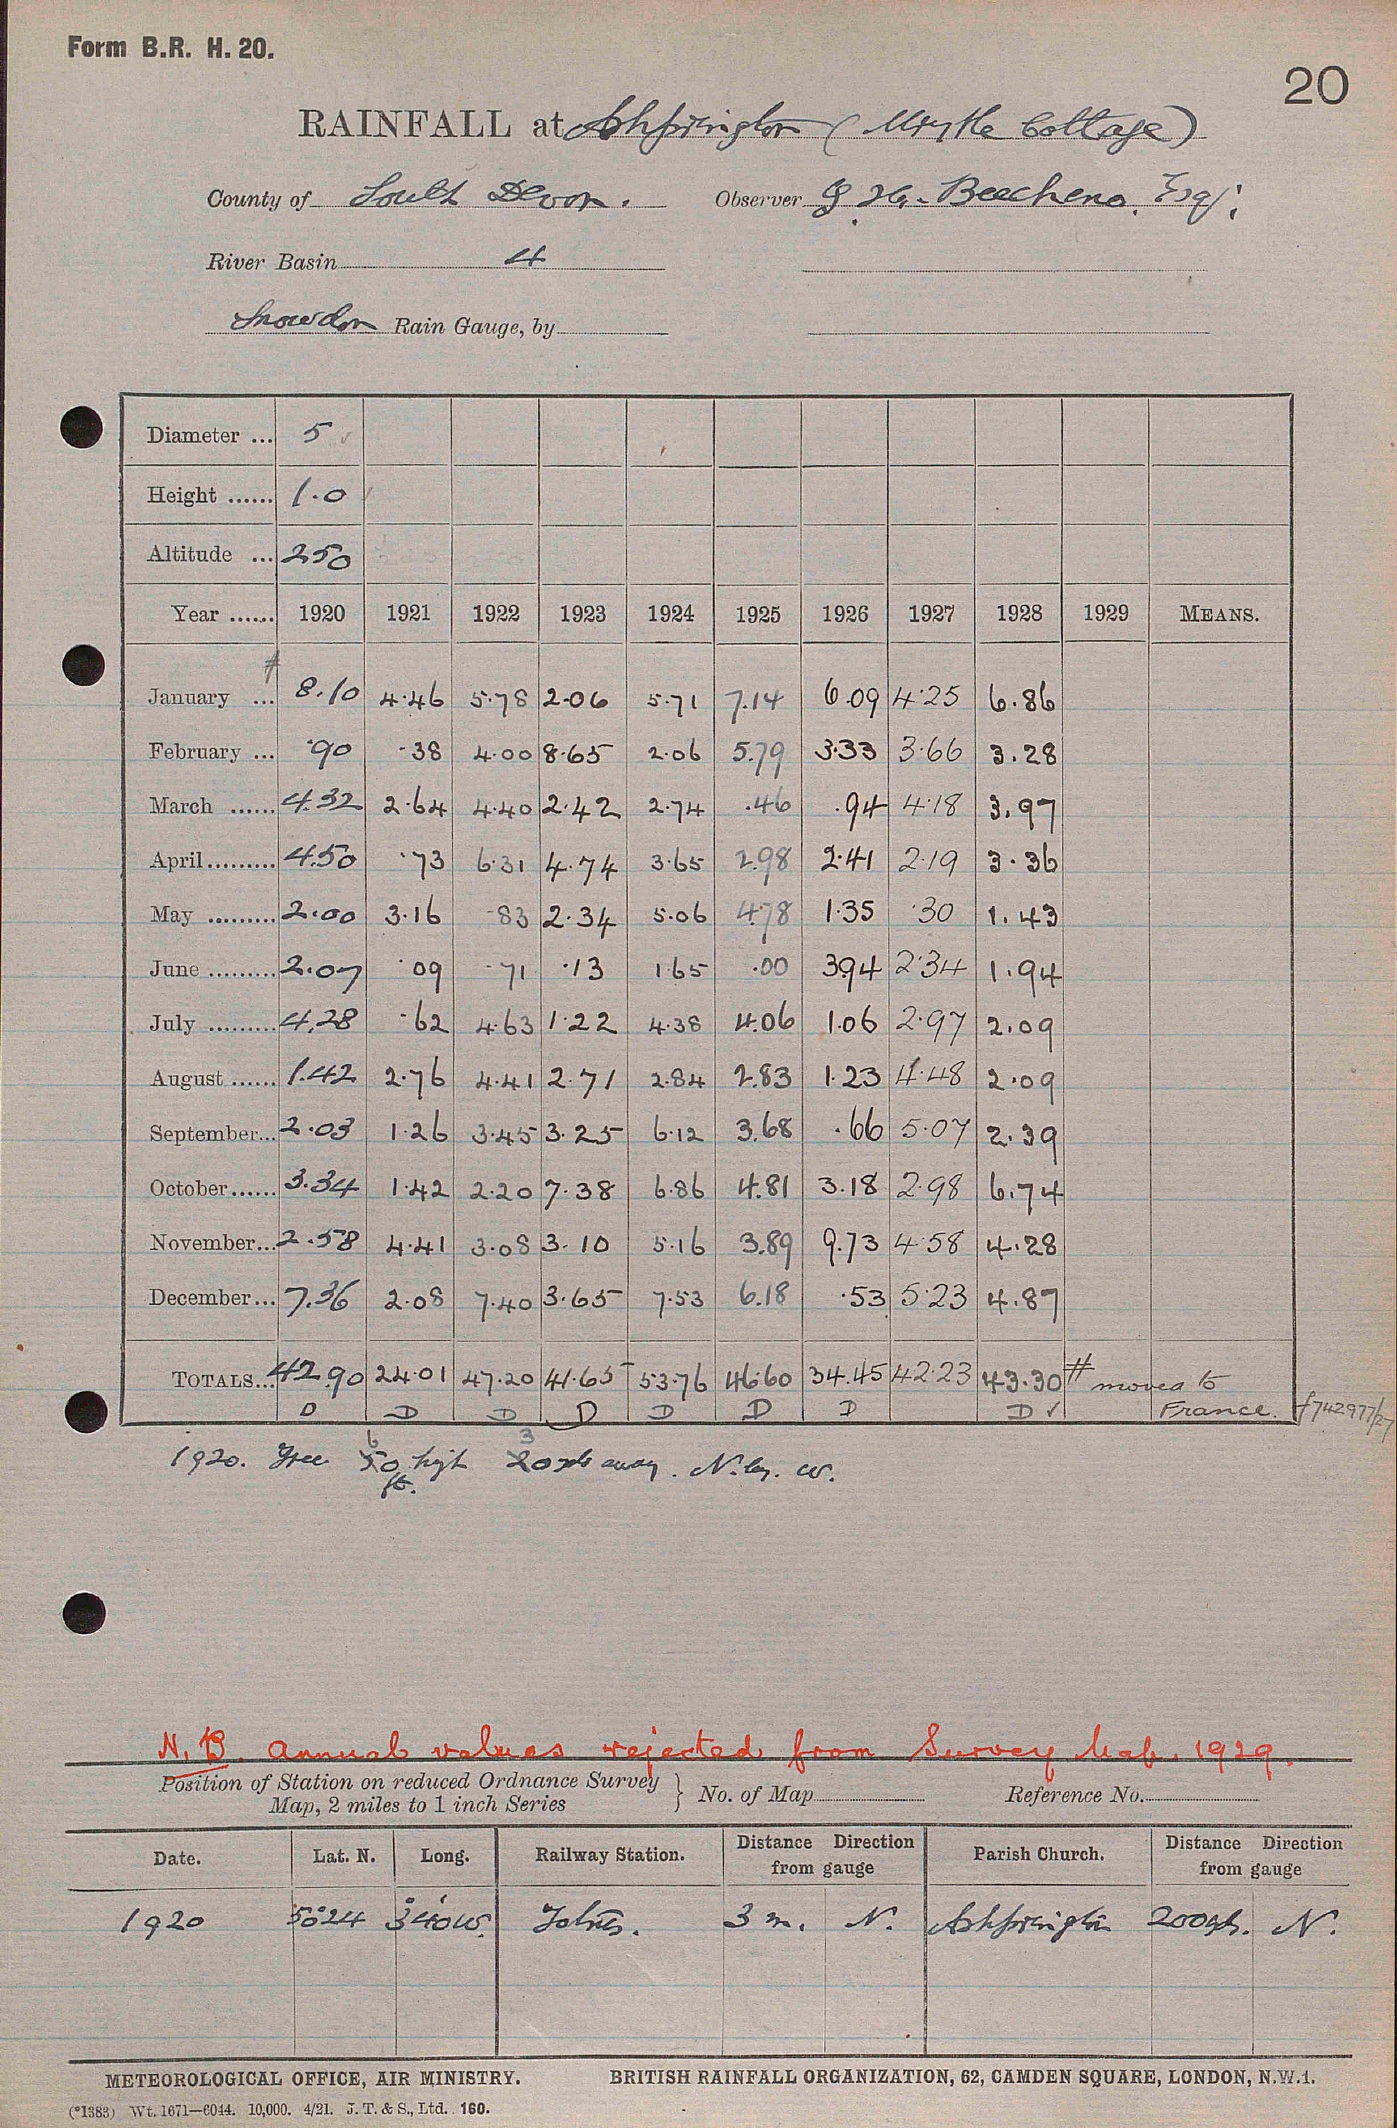 Form B.R. H. 20.
20
RAINFALL at Ashprington (Myrtle Cottage)
County of South Devon. Observer G. H. Beechens. Esq;
River Basin 4
Snowdon Rain Gauge, by
Diameter ... 5
Height ...... 1.0
Altitude ... 250
Year ...... 1920 1921 1922 1923 1924 1925 1926 1927 1928 1929 MEANS.
#
January ... 8.10 4.46 5.78 2.06 5.71 7.14 6.09 4.25 6.86
February ... .90 .38 4.00 8.65 2.06 5.79 3.33 3.66 3.28
March ...... 4.32 2.64 4.40 2.42 2.74 .46 .94 4.18 3.97
April ......... 4.50 .73 6.31 4.74 3.65 2.98 2.41 2.19 3.36
May ......... 2.00 3.16 .83 2.34 5.06 4.78 1.35 .30 1.43
June ......... 2.07 .09 .71 .13 1.65 .00 3.94 2.34 1.94
July ......... 4.28 .62 4.63 1.22 4.38 4.06 1.06 2.97 2.09
August ...... 1.42 2.76 4.41 2.71 2.84 2.83 1.23 4.48 2.09
September... 2.03 1.26 3.45 3.25 6.12 3.68 .66 5.07 2.39
October...... 3.34 1.42 2.20 7.38 6.86 4.81 3.18 2.98 6.74
November... 2.58 4.41 3.08 3.10 5.16 3.89 9.73 4.58 4.28
December... 7.36 2.08 7.40 3.65 7.53 6.18 .53 5.23 4.87
TOTALS... 42.90 24.01 47.20 41.65 53.76 46.60 34.45 42.23 43.30 # moved to
D D D D D D D D ✓ France. f742977/27
1920. Tree 50 ft. high 20 yds away. N. by. W.
6 3
N.B. Annual values rejected from Survey Map. 1929.
Position of Station on reduced Ordnance Survey
Map, 2 miles to 1 inch Series } No. of Map Reference No.
Date. Lat. N. Long. Railway Station. Distance Direction from gauge Parish Church. Distance Direction from gauge
1920 50°24 3°40'W. Totnes. 3 m. N. Ashprington 200 yds. N.
METEOROLOGICAL OFFICE, AIR MINISTRY. BRITISH RAINFALL ORGANIZATION, 62, CAMDEN SQUARE, LONDON, N.W.1.
(*1383) Wt. 1671—6044. 10,000. 4/21. J. T. & S., Ltd. 160.